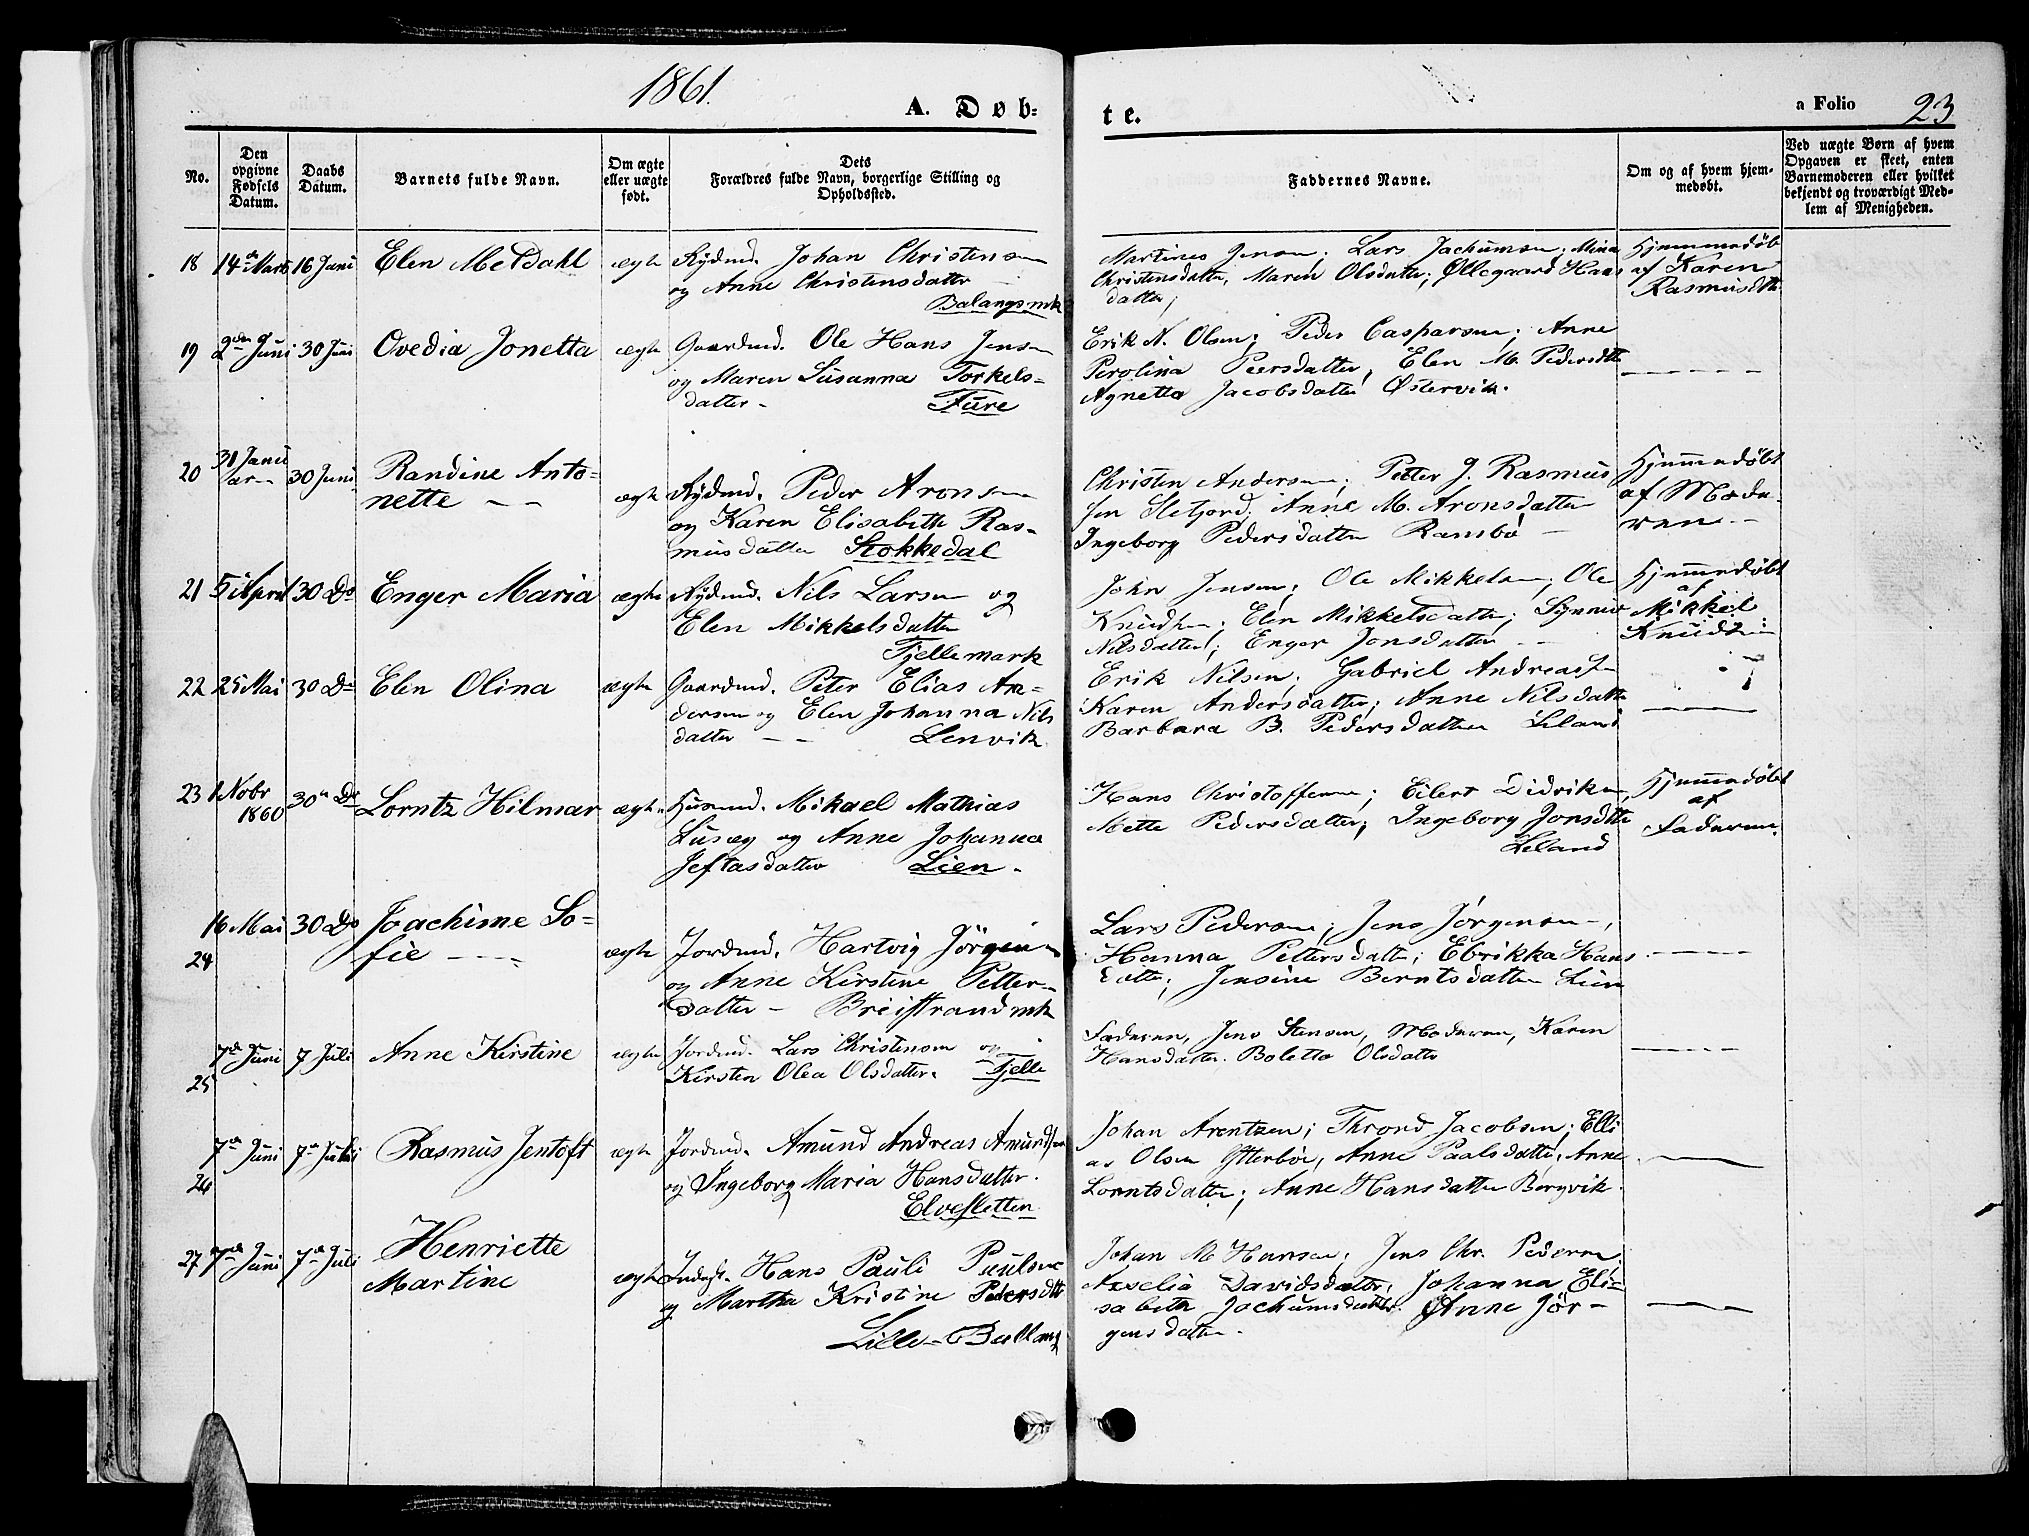 1861.
A. Døb=
te.
a Folio 23
No.
Den opgivne Fødsels Datum.
Daabs Datum.
Barnets fulde Navn.
Om ægte eller uægte født.
Dets Forældres fulde Navn, borgerlige Stilling og Opholdssted.
Faddernes Navne.
Om og af hvem hjemmedøbt.
Ved uægte Børn af hvem Opgaven er skeet, enten Barnemoderen eller hvilket bekjendt og troværdigt Medlem af Menigheden.
18 14de Marts 16 Juni Elen Meldahl ægte Rydmd. Johan Christensen
og Anne Christensdatter
Balangsmk
Martines Jensen; Lars Jachumsen; Mina
Christensdatter, Maren Olsdatter; Øllegaard Hans
datter;
Hjemmedøbt
af Karen
Rasmusdtr
19 2den Juni 30 Juni Ovedia Jonetta ægte Gaardmd. Ole Hans Jensen
og Maren Susanna Torkels=
datter - Fure
Erik N. Olsen; Peder Casparsen; Anne
Perolina Peersdatter, Elen M. Pedersdtr
Agnetta Jacobsdatter Østervik.
20 31 Janu
ar 30 Juni Randine Anto=
nette - - ægte Rydmd. Peder Aronsen
og Karen Elisabeth Ras=
musdatter Stokkedal
Christen Andersen; Petter J. Rasmus
sen Sletjord; Anne M. Aronsdatter
Ingeborg Pedersdatter Ramsbø
Hjemmedøbt
af Mode-
ren
21 5 April 30 Do Enger Maria ægte Rydmd. Nils Larsen og
Elen Mikkelsdatter
Fjellemark
John Jensen; Ole Mikkelsen; Ole
Knudsen; Elen Mikkelsdatter; Synnier
Nilsdatter; Enger Jonsdatter
Hjemmedøbt
af
Mikkel
Knudsen
22 25 Mai 30 Do Elen Olina ægte Gaardmd. Peter Elias An=
dersen og Elen Johanna Nils
datter - - Lenvik
Erik Nilsen; Gabriel Andreassen
Karen Andersdatter; Anne Nilsdatter
Barbara B. Pedersdatter Leland
23 1 Nobr
1860 30te Do Lorntz Hilmar ægte Husmd. Mikael Mathias
og Anne Johanna
Jeftasdatter Lien.
Hans Christoffersen; Eilert Didriksen,
Mette Pedersdatter; Ingeborg Jonsdtr
Leland
Hjemmedøbt
af
Faderen.
24 16 Mai 30 Do Joachime So=
fie - ægte Jordmd. Hartvig Jørgensen
og Anne Kirstine Petter-
datter - Breistrandmk
Lars Pedersen; Jens Jørgensen,
Hanna Pettersdatter; Ebrikka Hans
datter; Jensine Berntsdatter Lien
25 7de Juni 7 Juli Anne Kirstine ægte Jordmd. Lars Christensen og
Kirsten Olea Olsdatter. Fjelle
Faderen, Jens Stensen, Moderen, Karen
Hansdatter. Boletta Olsdatter
26 7de Juni 7de Juli Rasmus Jentoft ægte Jordmd. Amund Andreas Amundsen
og Ingeborg Maria Hansdatter.
Elvesletten
Johan Arentzen; Thrond Jacobsen; Elli
as Olsen Ytterbøe, Anne Paalsdatter, Anne
Lorntsdatter; Anne Hansdatter Bergvik.
27 7de Juni 7de Juli Henriette
Martine ægte Indst. Hans Pauli Paulsen
og Martha Kristine Pedersdtr
Lille-Ballang
Johan M Hansen; Jens Chr. Pedersen
Axselia Davidsdatter; Johanna Eli-
sabeth Jachumsdatter. Anne Jør-
gensdatter.